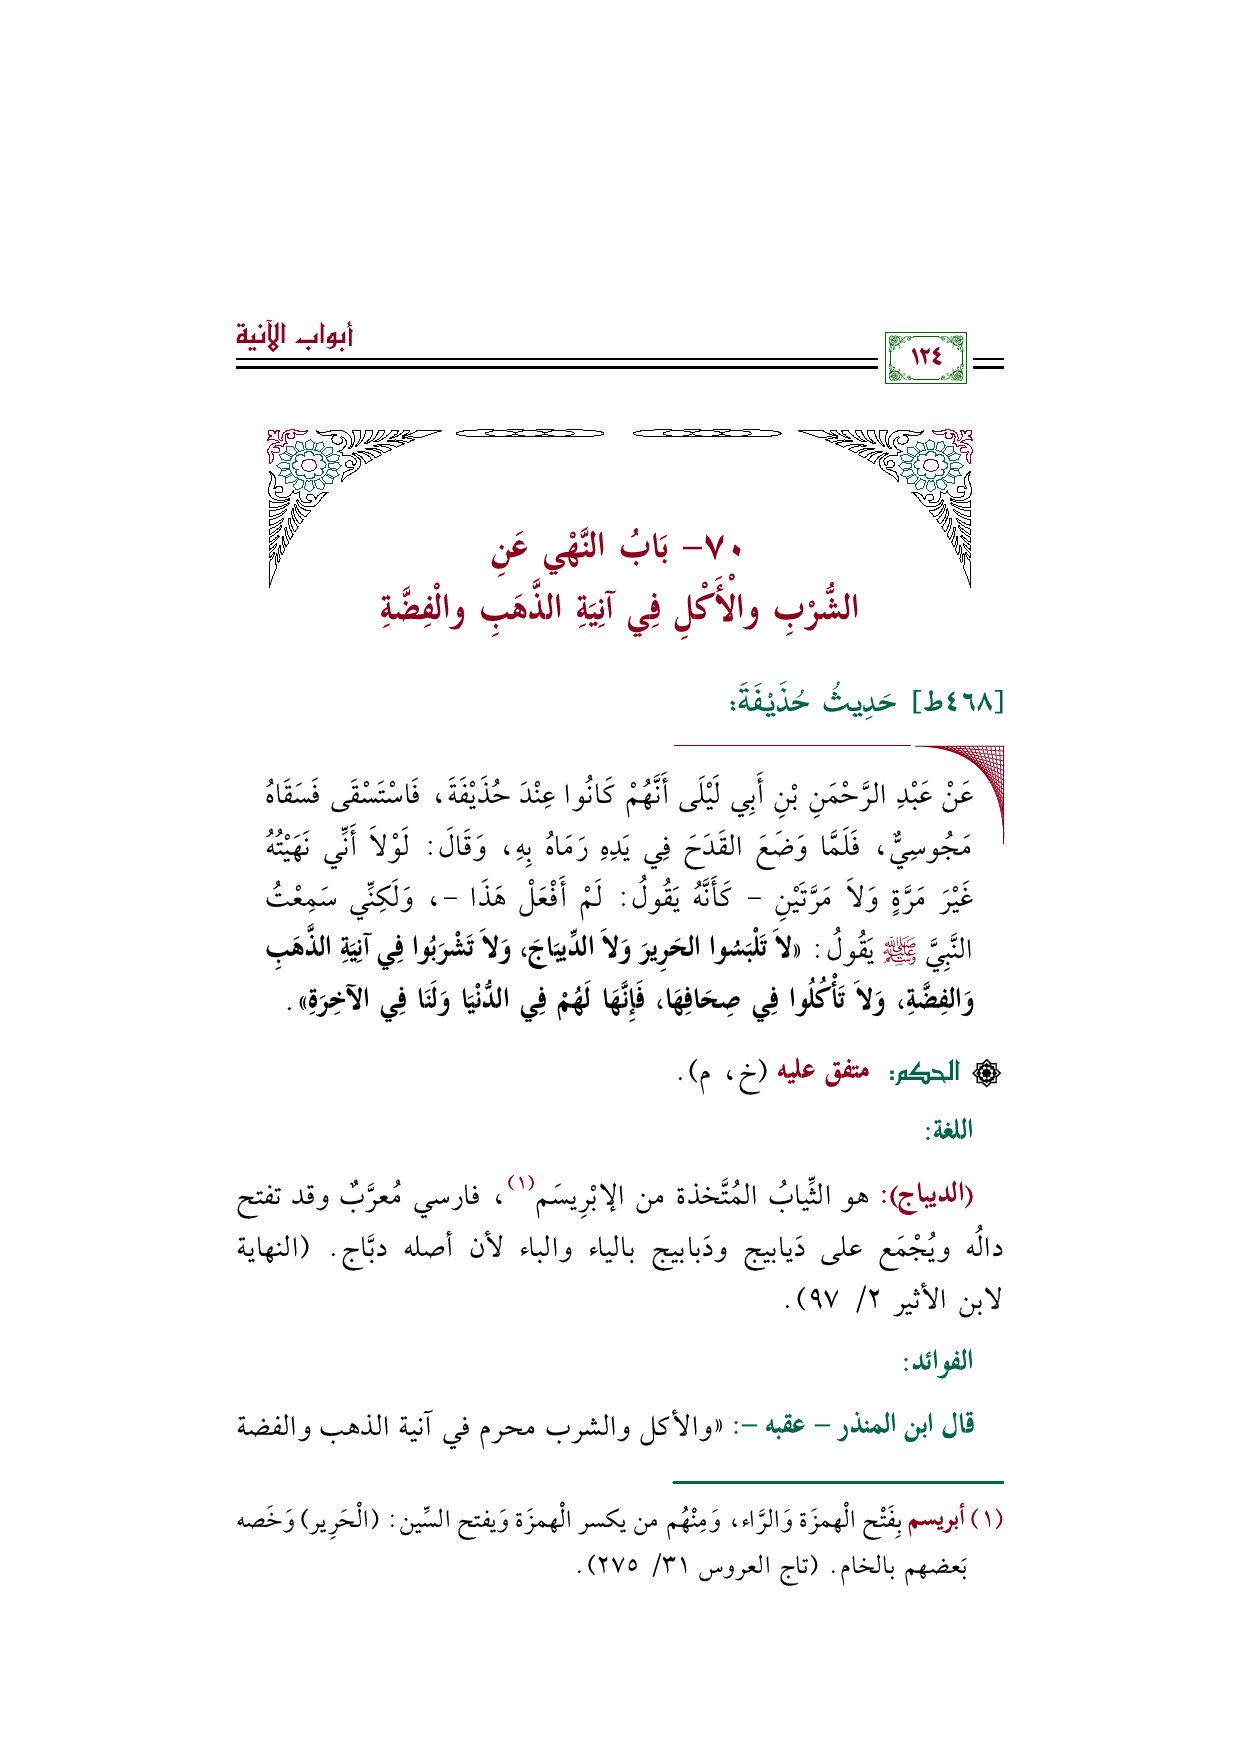 أبواب الآنية
١٢٤
٧٠- بَابُ النَّهْي عَنِ
الشُّرْبِ والْأَكْلِ فِي آنِيَةِ الذَّهَبِ والْفِضَّةِ
[٤٦٨ط] حَدِيثُ حُذَيْفَةَ:
عَنْ عَبْدِ الرَّحْمَنِ بْنِ أَبِي لَيْلَى أَنَّهُمْ كَانُوا عِنْدَ حُذَيْفَةَ، فَاسْتَسْقَى فَسَقَاهُ
مَجُوسِيٌّ، فَلَمَّا وَضَعَ القَدَحَ فِي يَدِهِ رَمَاهُ بِهِ، وَقَالَ: لَوْلاَ أَنِّي نَهَيْتُهُ
غَيْرَ مَرَّةٍ وَلاَ مَرَّتَيْنِ - كَأَنَّهُ يَقُولُ: لَمْ أَفْعَلْ هَذَا -، وَلَكِنِّي سَمِعْتُ
النَّبِيَّ ﷺ يَقُولُ: «لاَ تَلْبَسُوا الحَرِيرَ وَلاَ الدِّيبَاجَ، وَلاَ تَشْرَبُوا فِي آنِيَةِ الذَّهَبِ
وَالفِضَّةِ، وَلاَ تَأْكُلُوا فِي صِحَافِهَا، فَإِنَّهَا لَهُمْ فِي الدُّنْيَا وَلَنَا فِي الآخِرَةِ».
الحكم: متفق عليه (خ، م).
اللغة:
(الديباج): هو الثِّيابُ المُتَّخذة من الإبْرِيسَم(١)، فارسي مُعرَّبٌ وقد تفتح
دالُه ويُجْمَع على دَيابيج ودَبابيج بالياء والباء لأن أصله دبَّاج. (النهاية
لابن الأثير ٢/ ٩٧).
الفوائد:
قال ابن المنذر - عقبه -: «والأكل والشرب محرم في آنية الذهب والفضة
(١) أبريسم بِفَتْح الْهمزَة وَالرَّاء، وَمِنْهُم من يكسر الْهمزَة وَيفتح السِّين: (الْحَرِير) وَخَصه
بَعضهم بالخام. (تاج العروس ٣١/ ٢٧٥).